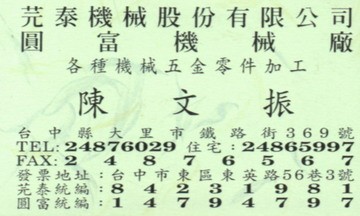 芫泰機械股份有限公司
圓富機械廠
各種機械五金零件加工
陳文振
台中縣大里市鐵路街369號
TEL:24876029 住宅:24865997
FAX:24876567
發票地址:台中市東區東英路56巷3號
芫泰統編:84231981
圓富統編:14794797